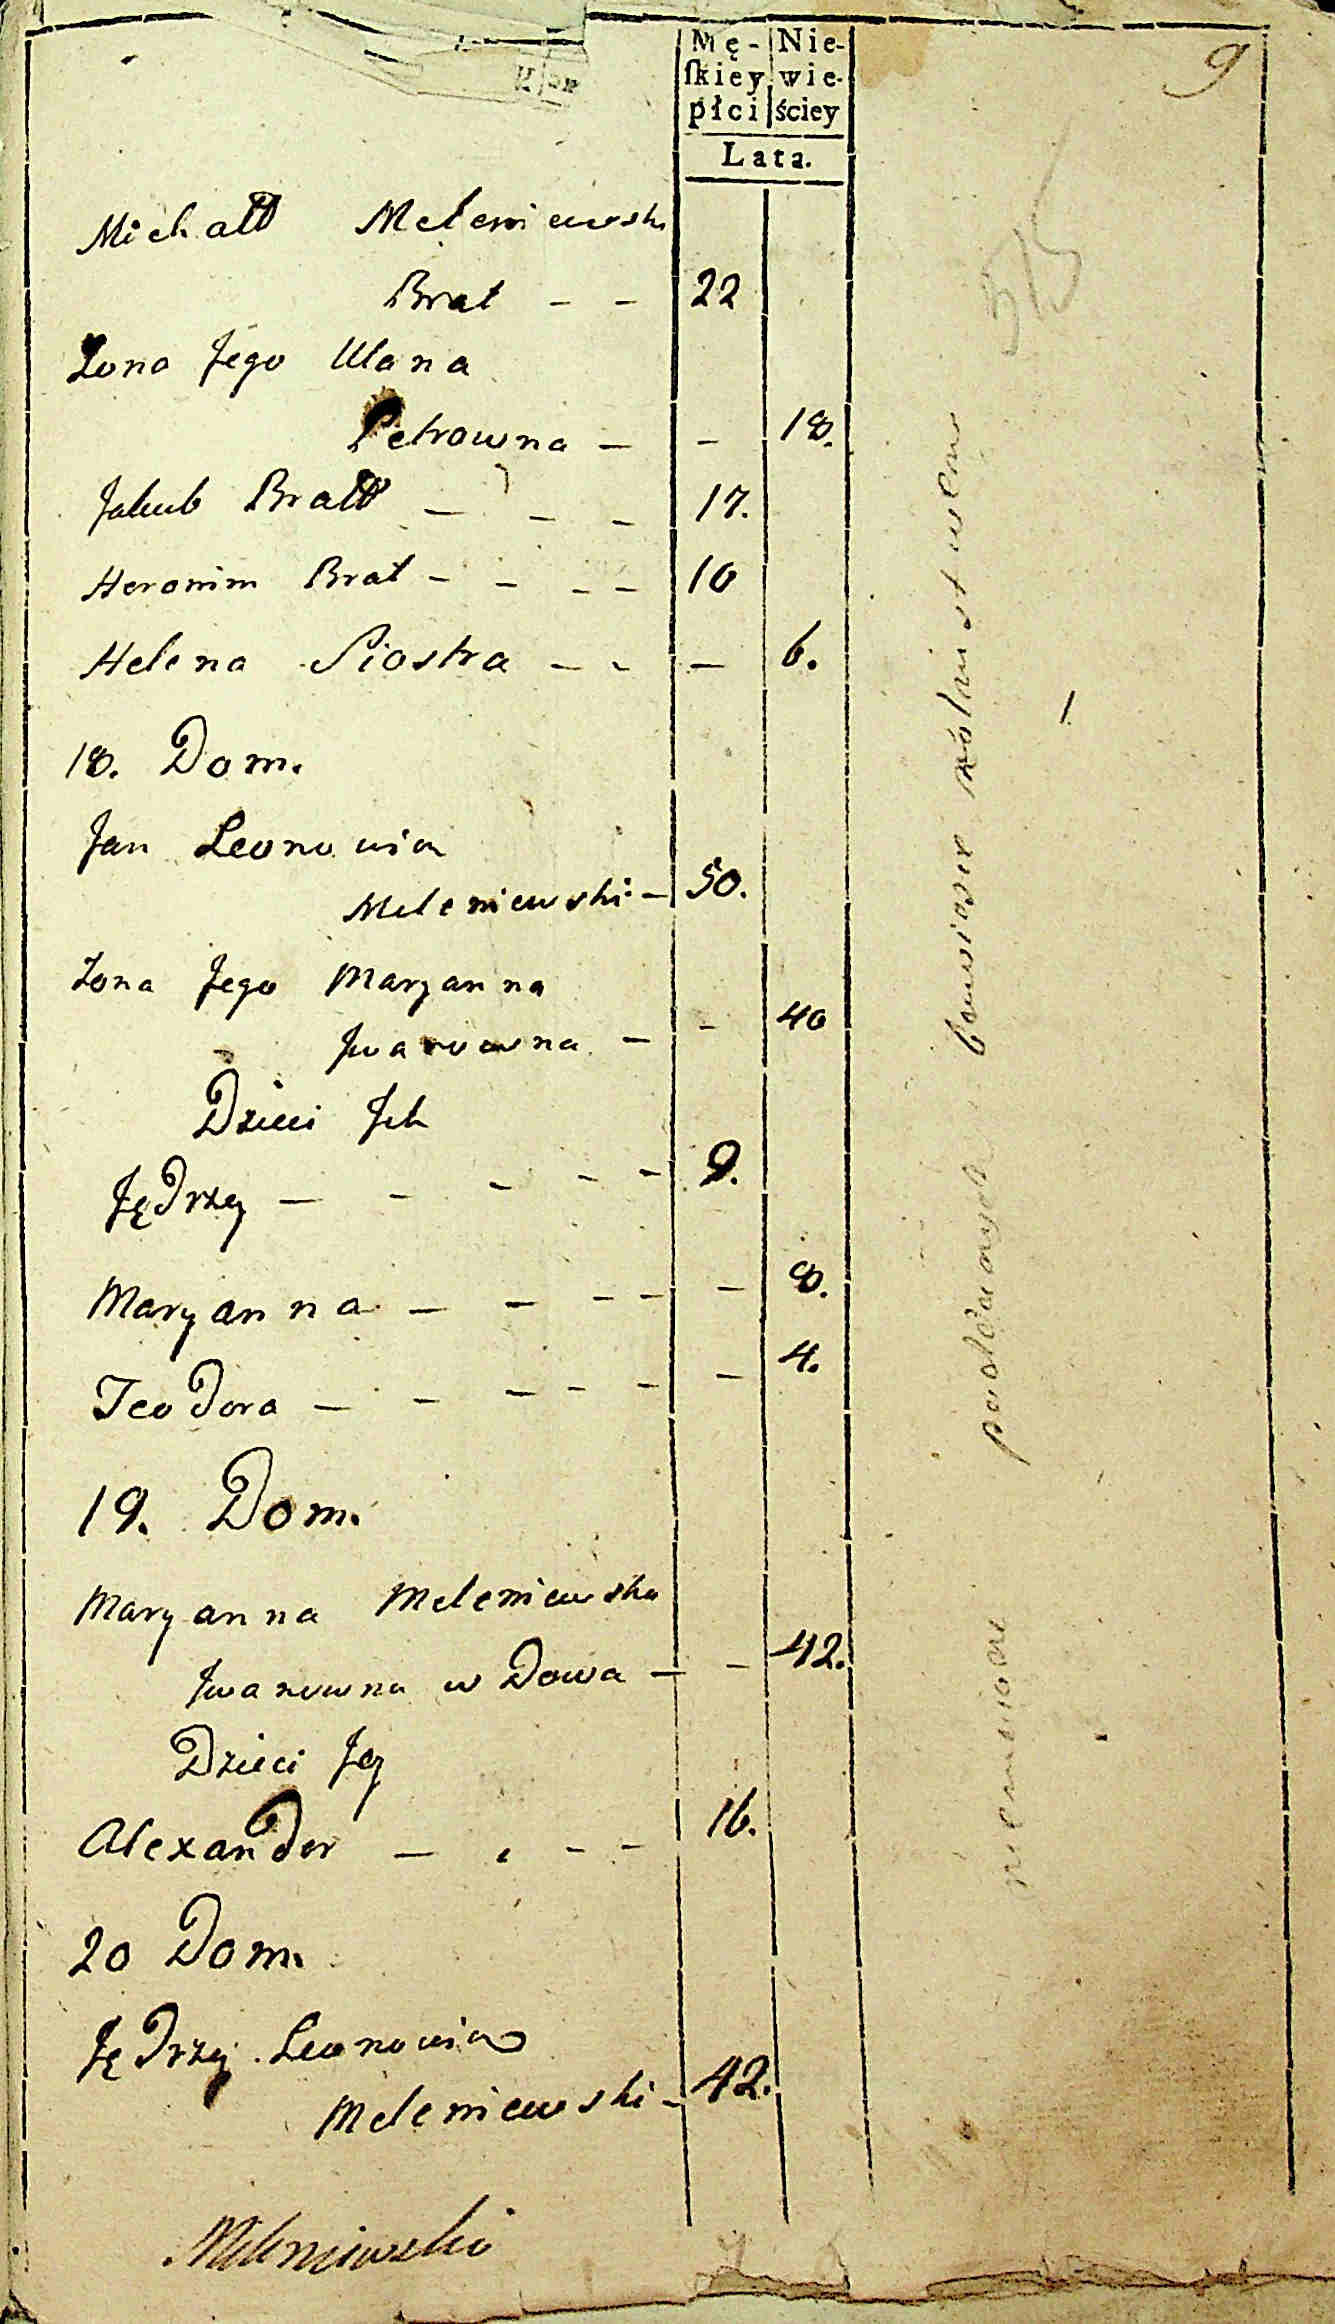 Mę- Nie-
ſkiey wie-
płci ściey
Lata.
9
Michałł Meleniewski
Brat - - 22
Zona Jego Ulana
Petrowna - - 18.
Jakub Bratt - - - 17.
Heronim Brat - - - - 10
Helena Siostra - - - 6.
18. Dom.
Jan Leonowicz
Meleniewski - 50.
Zona Jego Maryanna
Jwanowna - - 40
Dzieci Jch
Jędrzey - - - - - 9.
Maryanna - - - - - 8.
Teodora - - - - - - 4.
19. Dom.
Maryanna Meleniewska
Jwanowna wdowa - - 42.
Dzieci Jey
Alexander - - - - 16.
20 Dom.
Jędrzey Leonowicz
Meleniewski - 42.
Meleniewski
poddanych